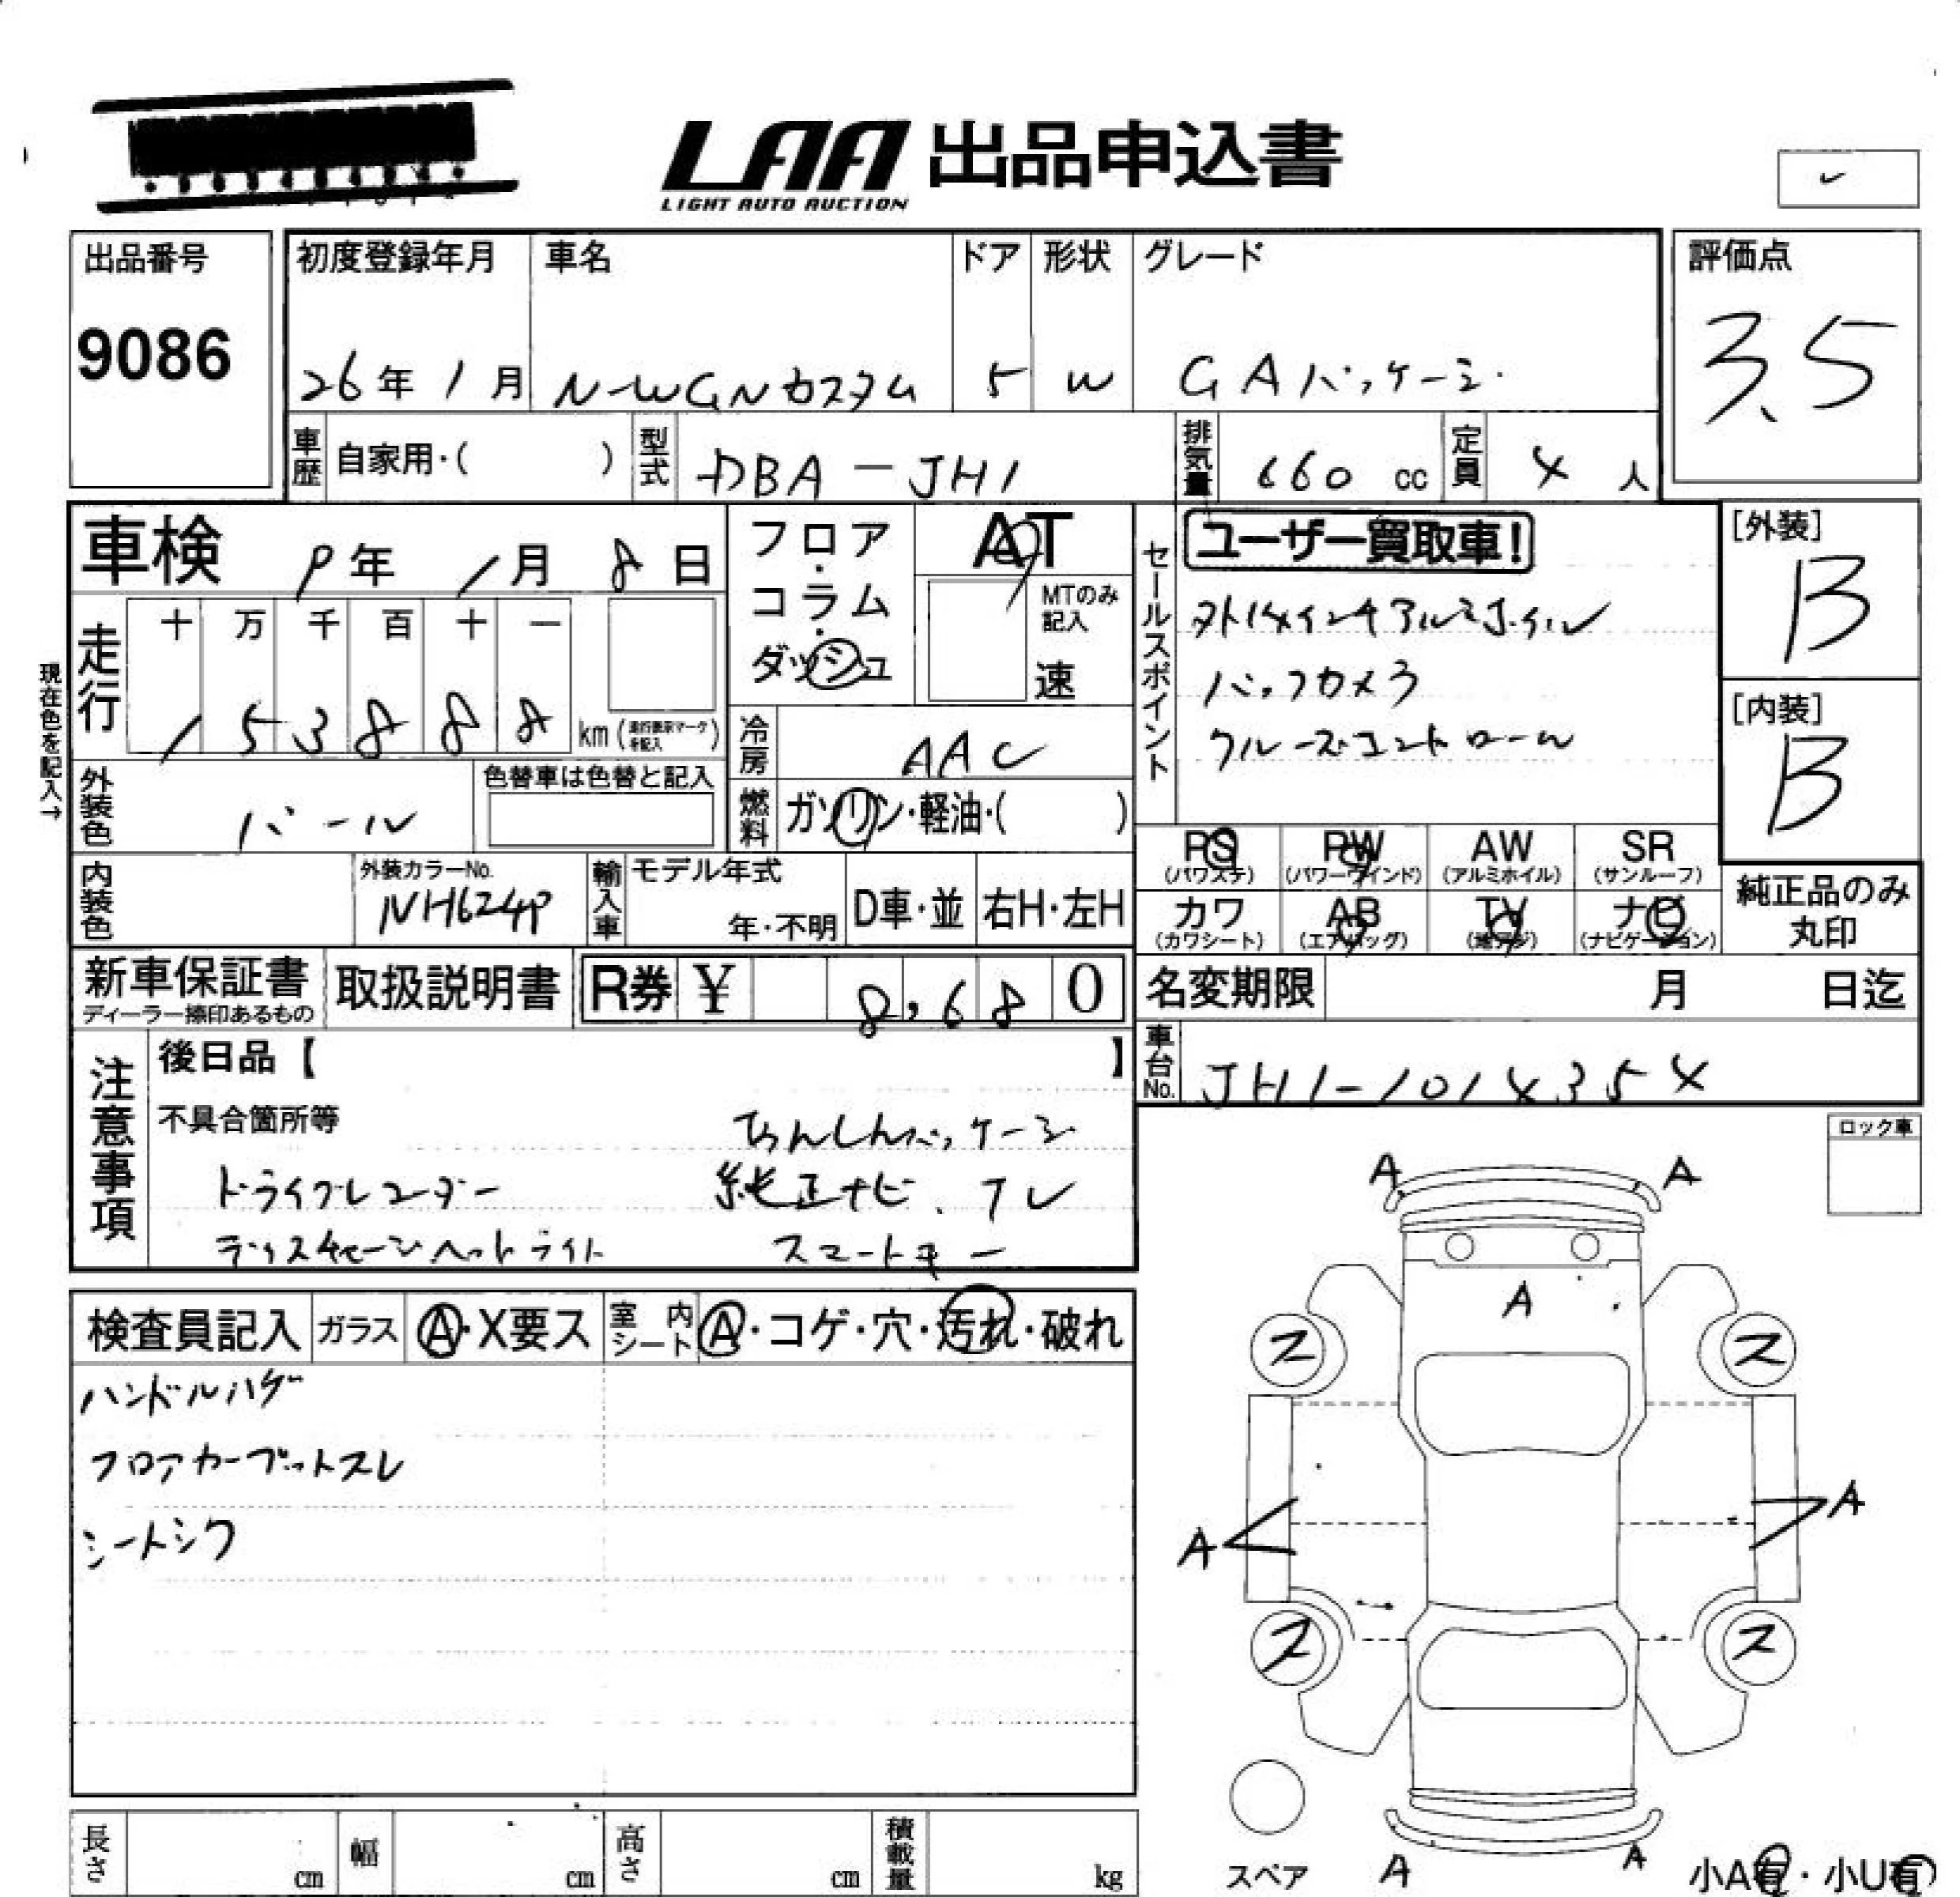 LAA 出品申込書
LIGHT AUTO AUCTION
出品番号
9086
初度登録年月 車名 ドア 形状 グレード
26年 1月 N-WGNカスタム 5 W G Aパッケージ
評価点
3.5
車歴 自家用・( ) 型式 DBA-JH1 排気量 660 cc 定員 4 人
車検 9年 1月 8日
フロア・コラム・ダッシュ
AT
MTのみ記入
速
現在色を記入→
走行 十 万 千 百 十 一
1 5 3 8 8 8 km (走行表示マークを記入)
冷房 AAC
燃料 ガソリン・軽油・( )
外装色 パール
色替車は色替と記入
内装色
外装カラーNo.
NH624P
輸入車 モデル年式
年・不明 D車・並 右H・左H
セールスポイント
ユーザー買取車!
外14インチアルミホイル
バックカメラ
クルーズコントロール
[外装]
B
[内装]
B
PS (パワステ) PW (パワーウィンド) AW (アルミホイル) SR (サンルーフ)
カワ (カワシート) AB (エアバッグ) TV (地デジ) ナビ (ナビゲーション)
純正品のみ
丸印
新車保証書
ディーラー捺印あるもの
取扱説明書 R券 ¥ 8,680
名変期限 月 日迄
車台No. JH1-1014354
注意事項
後日品【 】
不具合箇所等 あんしんパッケージ
ドライブレコーダー 純正ナビ、テレ
ディスチャージヘッドライト スマートキー
ロック車
検査員記入 ガラス A・X要ス 室内シート A・コゲ・穴・汚れ・破れ
ハンドルハゲ
フロアカーペットスレ
シートシワ
A A
A
ス ス
A A
ス ス
A A
スペア
小A有・小U有
長さ cm 幅 cm 高さ cm 積載量 kg